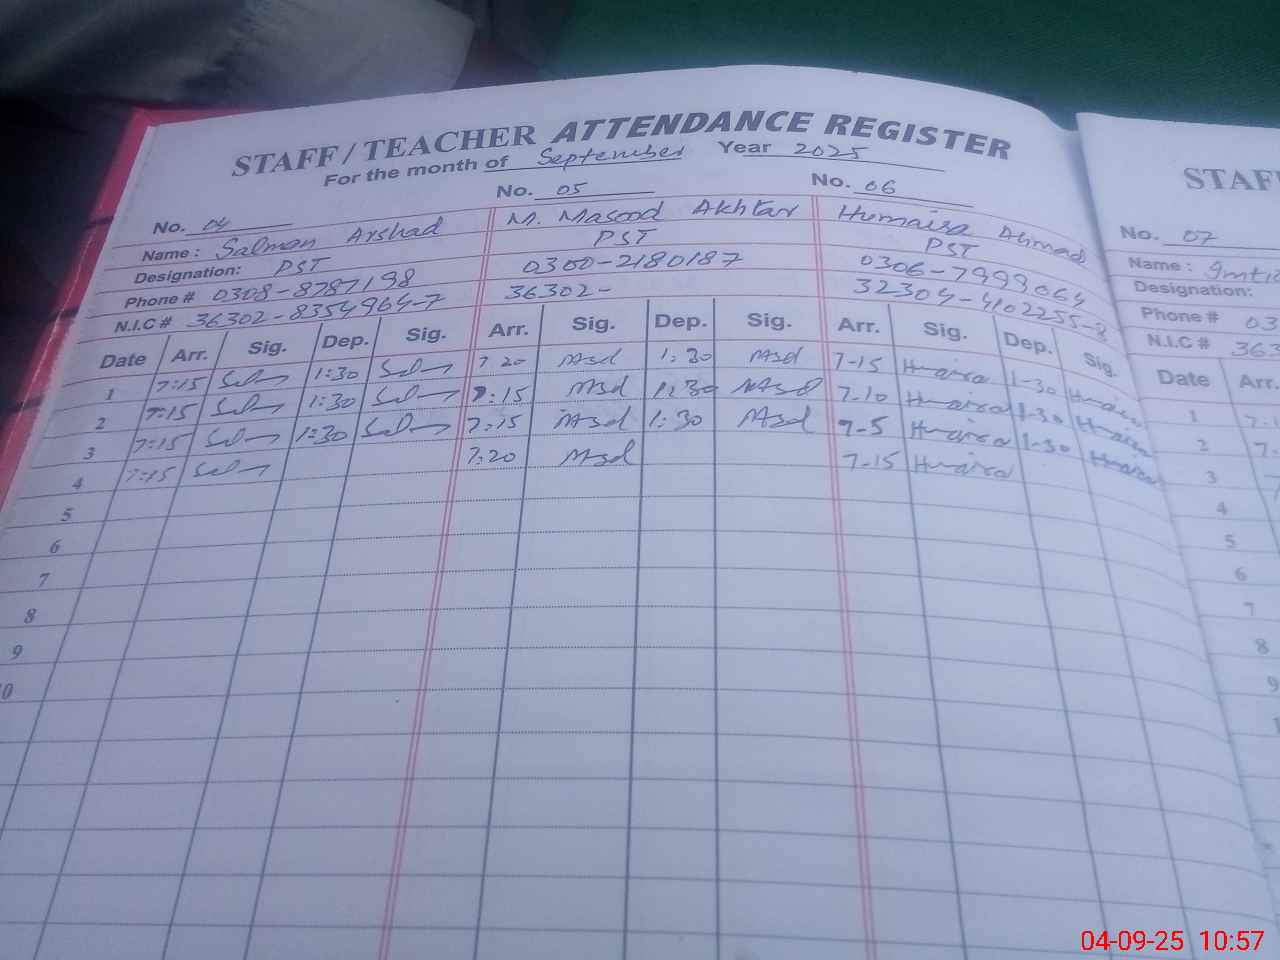 STAFF / TEACHER ATTENDANCE REGISTER
For the month of September Year 2025
No. 04 No. 05 No. 06
Name: Salman Arshad M. Masood Akhtar Humaira Ahmad
Designation: PST PST PST
Phone # 0308-8787198 0300-2180187 0306-7999064
N.I.C # 36302-8354964-7 36302- 32304-4102255-8
Date Arr. Sig. Dep. Sig. Arr. Sig. Dep. Sig. Arr. Sig. Dep. Sig.
1 7:15 1:30 7:20 Msd 1:30 Msd 7-15 Humaira 1-30 Humaira
2 7:15 1:30 7:15 Msd 1:30 Msd 7-10 Humaira 1-30 Humaira
3 7:15 1:30 7:15 Msd 1:30 Msd 7-5 Humaira 1-30 Humaira
4 7:15 7:20 Msd 7-15 Humaira
5
6
7
8
9
10
STAF
No. 07
Name:
Designation:
Phone # 03
N.I.C # 363
Date Arr.
1
2
3
4
5
6
7
8
9
04-09-25 10:57